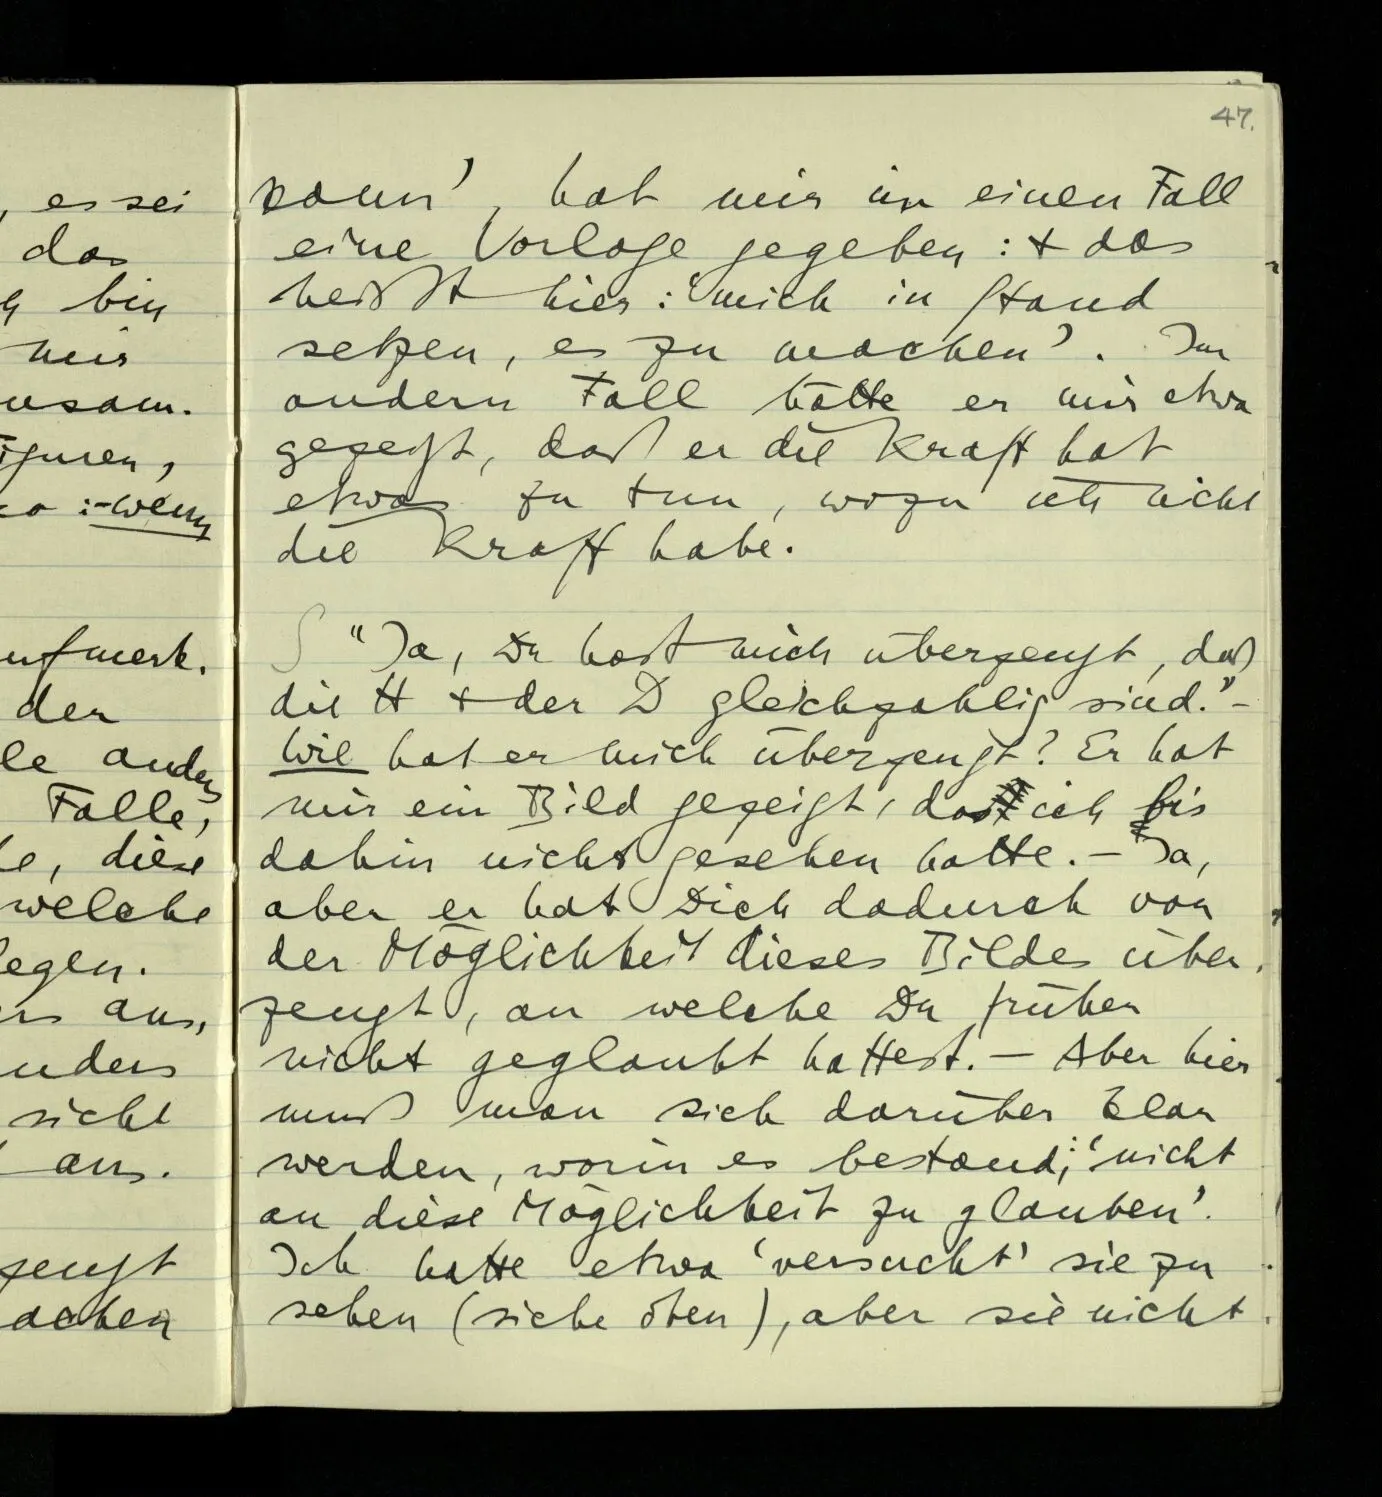 , es sei
das
bin
mir
Figuren,
:-wenn
aufmerk.
der
alle anders
Falle,
, diese
welche
legen.
aus,
anders
sicht
aus.
47.
kann', hat mir in einen Fall
eine Vorlage gegeben: + das
heißt hier: 'mich in Stand
setzen, es zu machen'. Im
andern Fall hätte er mir etwa
gezeigt, daß er die Kraft hat
etwas zu tun, wozu ich nicht
die Kraft habe.
"Ja, Du hast mich überzeugt, daß
die H + der D gleichzahlig sind." –
Wie hat er mich überzeugt? Er hat
mir ein Bild gezeigt, das ich bis
dahin nicht gesehen hatte. – Ja,
aber er hat Dich dadurch von
der Möglichkeit dieses Bildes über-
zeugt, an welche Du früher
nicht geglaubt hattest. – Aber hier
muß man sich darüber klar
werden, worin es bestand: 'nicht
an diese Möglichkeit zu glauben'.
Ich hatte etwa 'versucht' sie zu
sehen (siehe oben), aber sie nicht